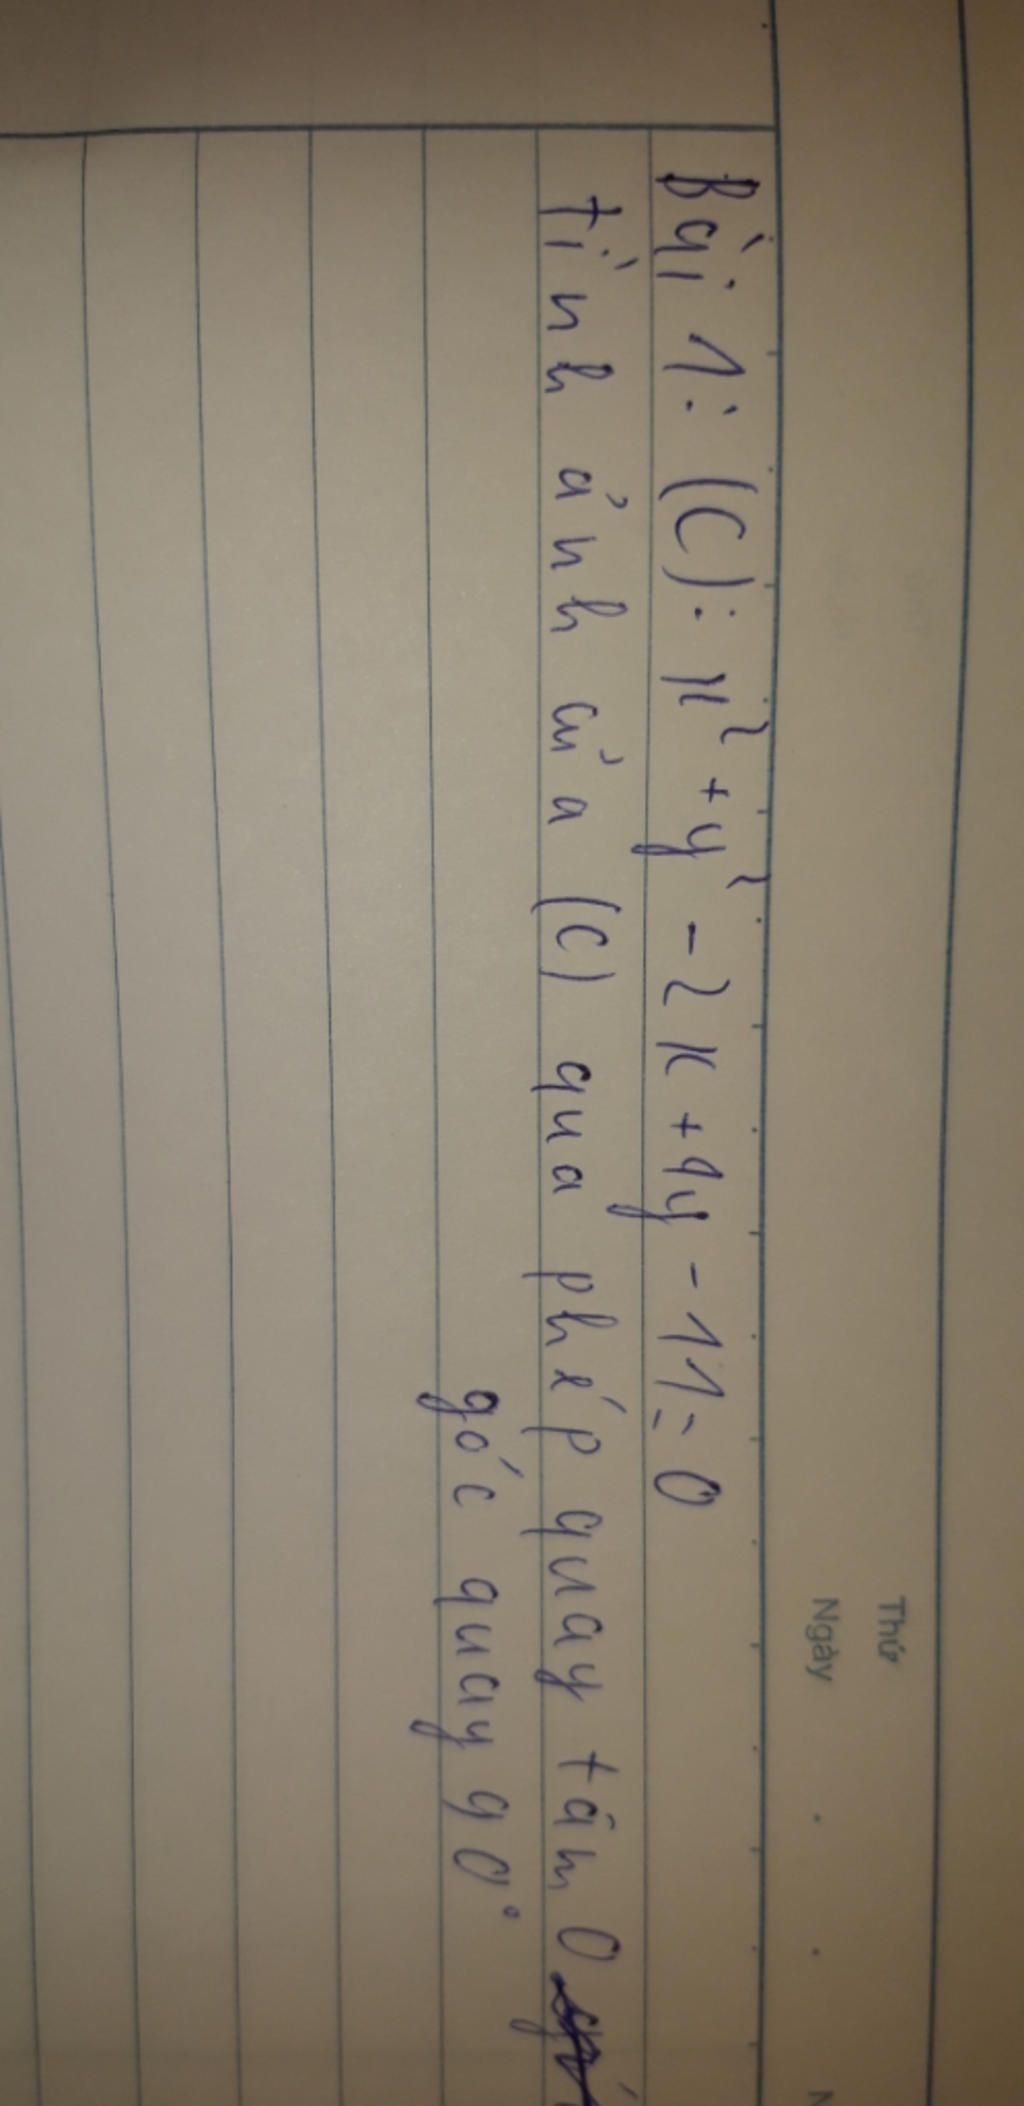 Thứ
Ngày
N
Bài 1: (C): x² + y² - 2x + 4y - 11 = 0
tính ảnh của (C) qua phép quay tâm O
góc quay 90°